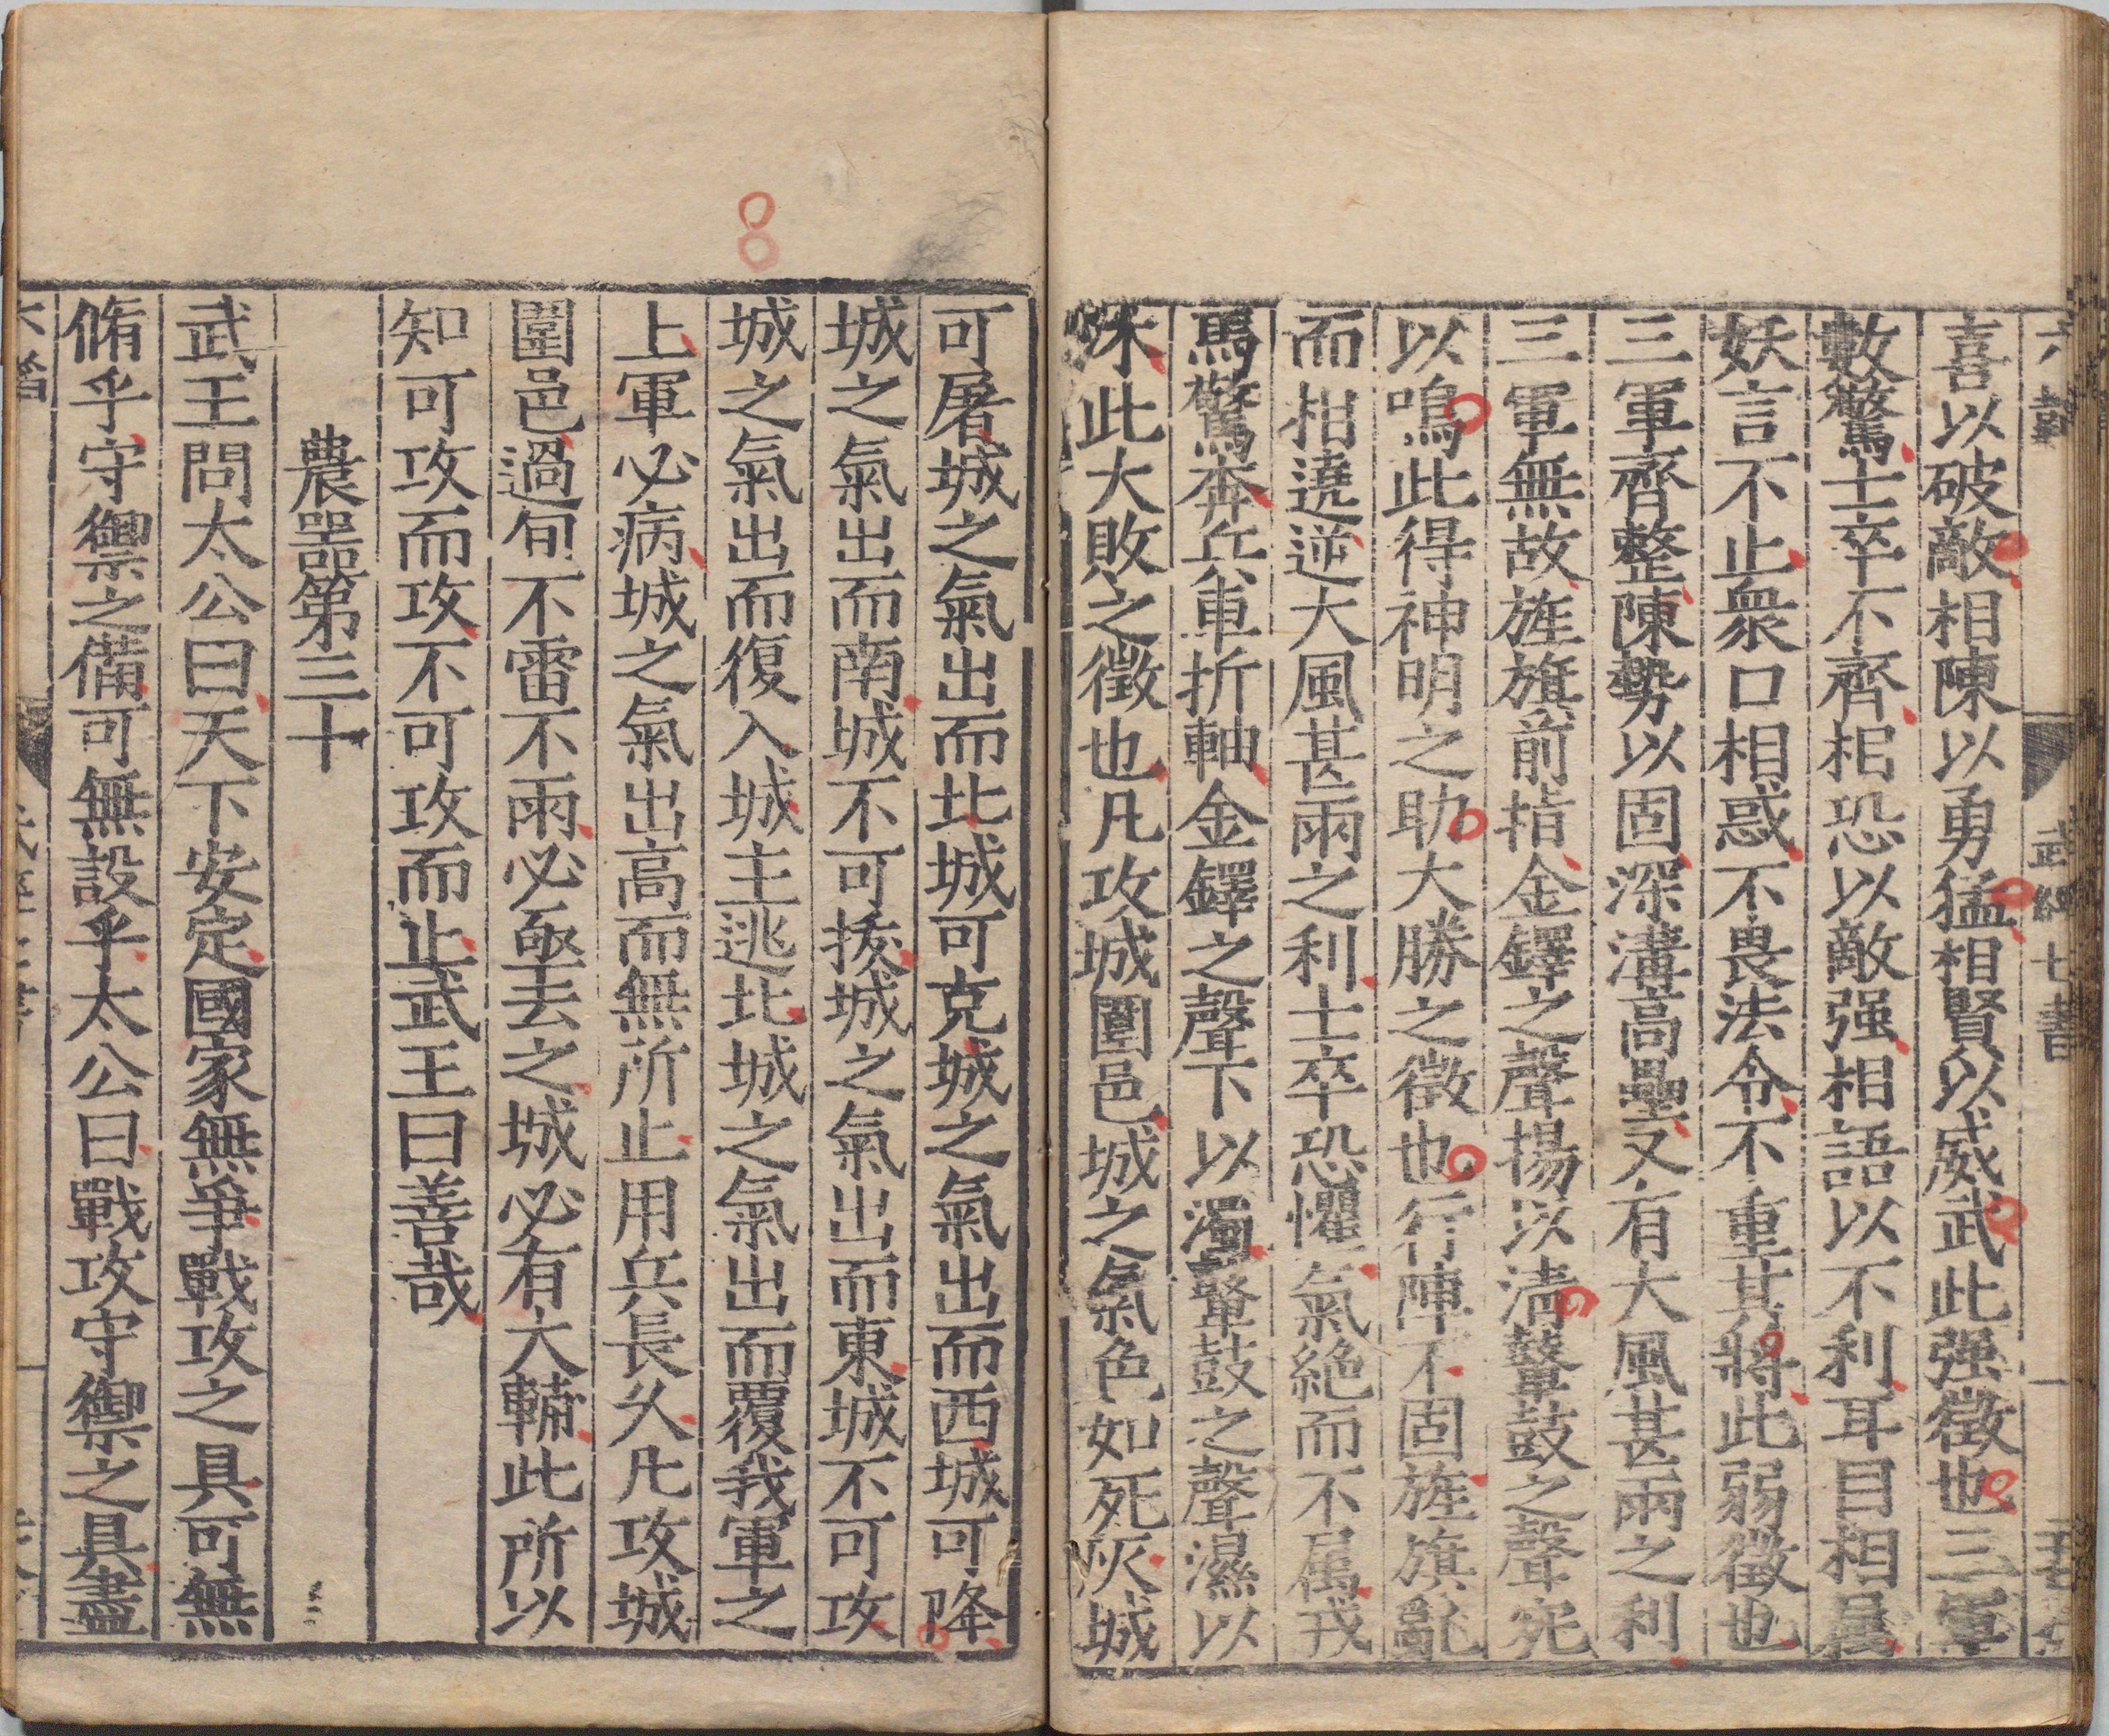 六韜 武經七書
喜以破敵相陳以勇猛相賢以威武此强徵也三軍
數驚士卒不齊相恐以敵强相語以不利耳目相屬
妖言不止衆口相惑不畏法令不重其將此弱徵也
三軍齊整陳勢以固深溝高壘又有大風甚雨之利
三軍無故旌旗前指金鐸之聲揚以淸鼙鼓之聲宛
以鳴此得神明之助大勝之徵也行陣不固旌旗亂
而相遶逆大風甚雨之利士卒恐懼氣絶而不属戎
馬驚奔兵車折軸金鐸之聲下以濁鼙鼓之聲濕以
沐此大敗之徵也凡攻城圍邑城之氣色如死灰城
可屠城之氣出而北城可克城之氣出而西城可降
城之氣出而南城不可拔城之氣出而東城不可攻
城之氣出而復入城主逃北城之氣出而覆我軍之
上軍必病城之氣出高而無所止用兵長久凡攻城
圍邑過旬不雷不雨必亟去之城必有大輔此所以
知可攻而攻不可攻而止武王曰善哉
農器第三十
武王問太公曰天下安定國家無爭戰攻之具可無
脩乎守禦之備可無設乎太公曰戰攻守禦之具盡